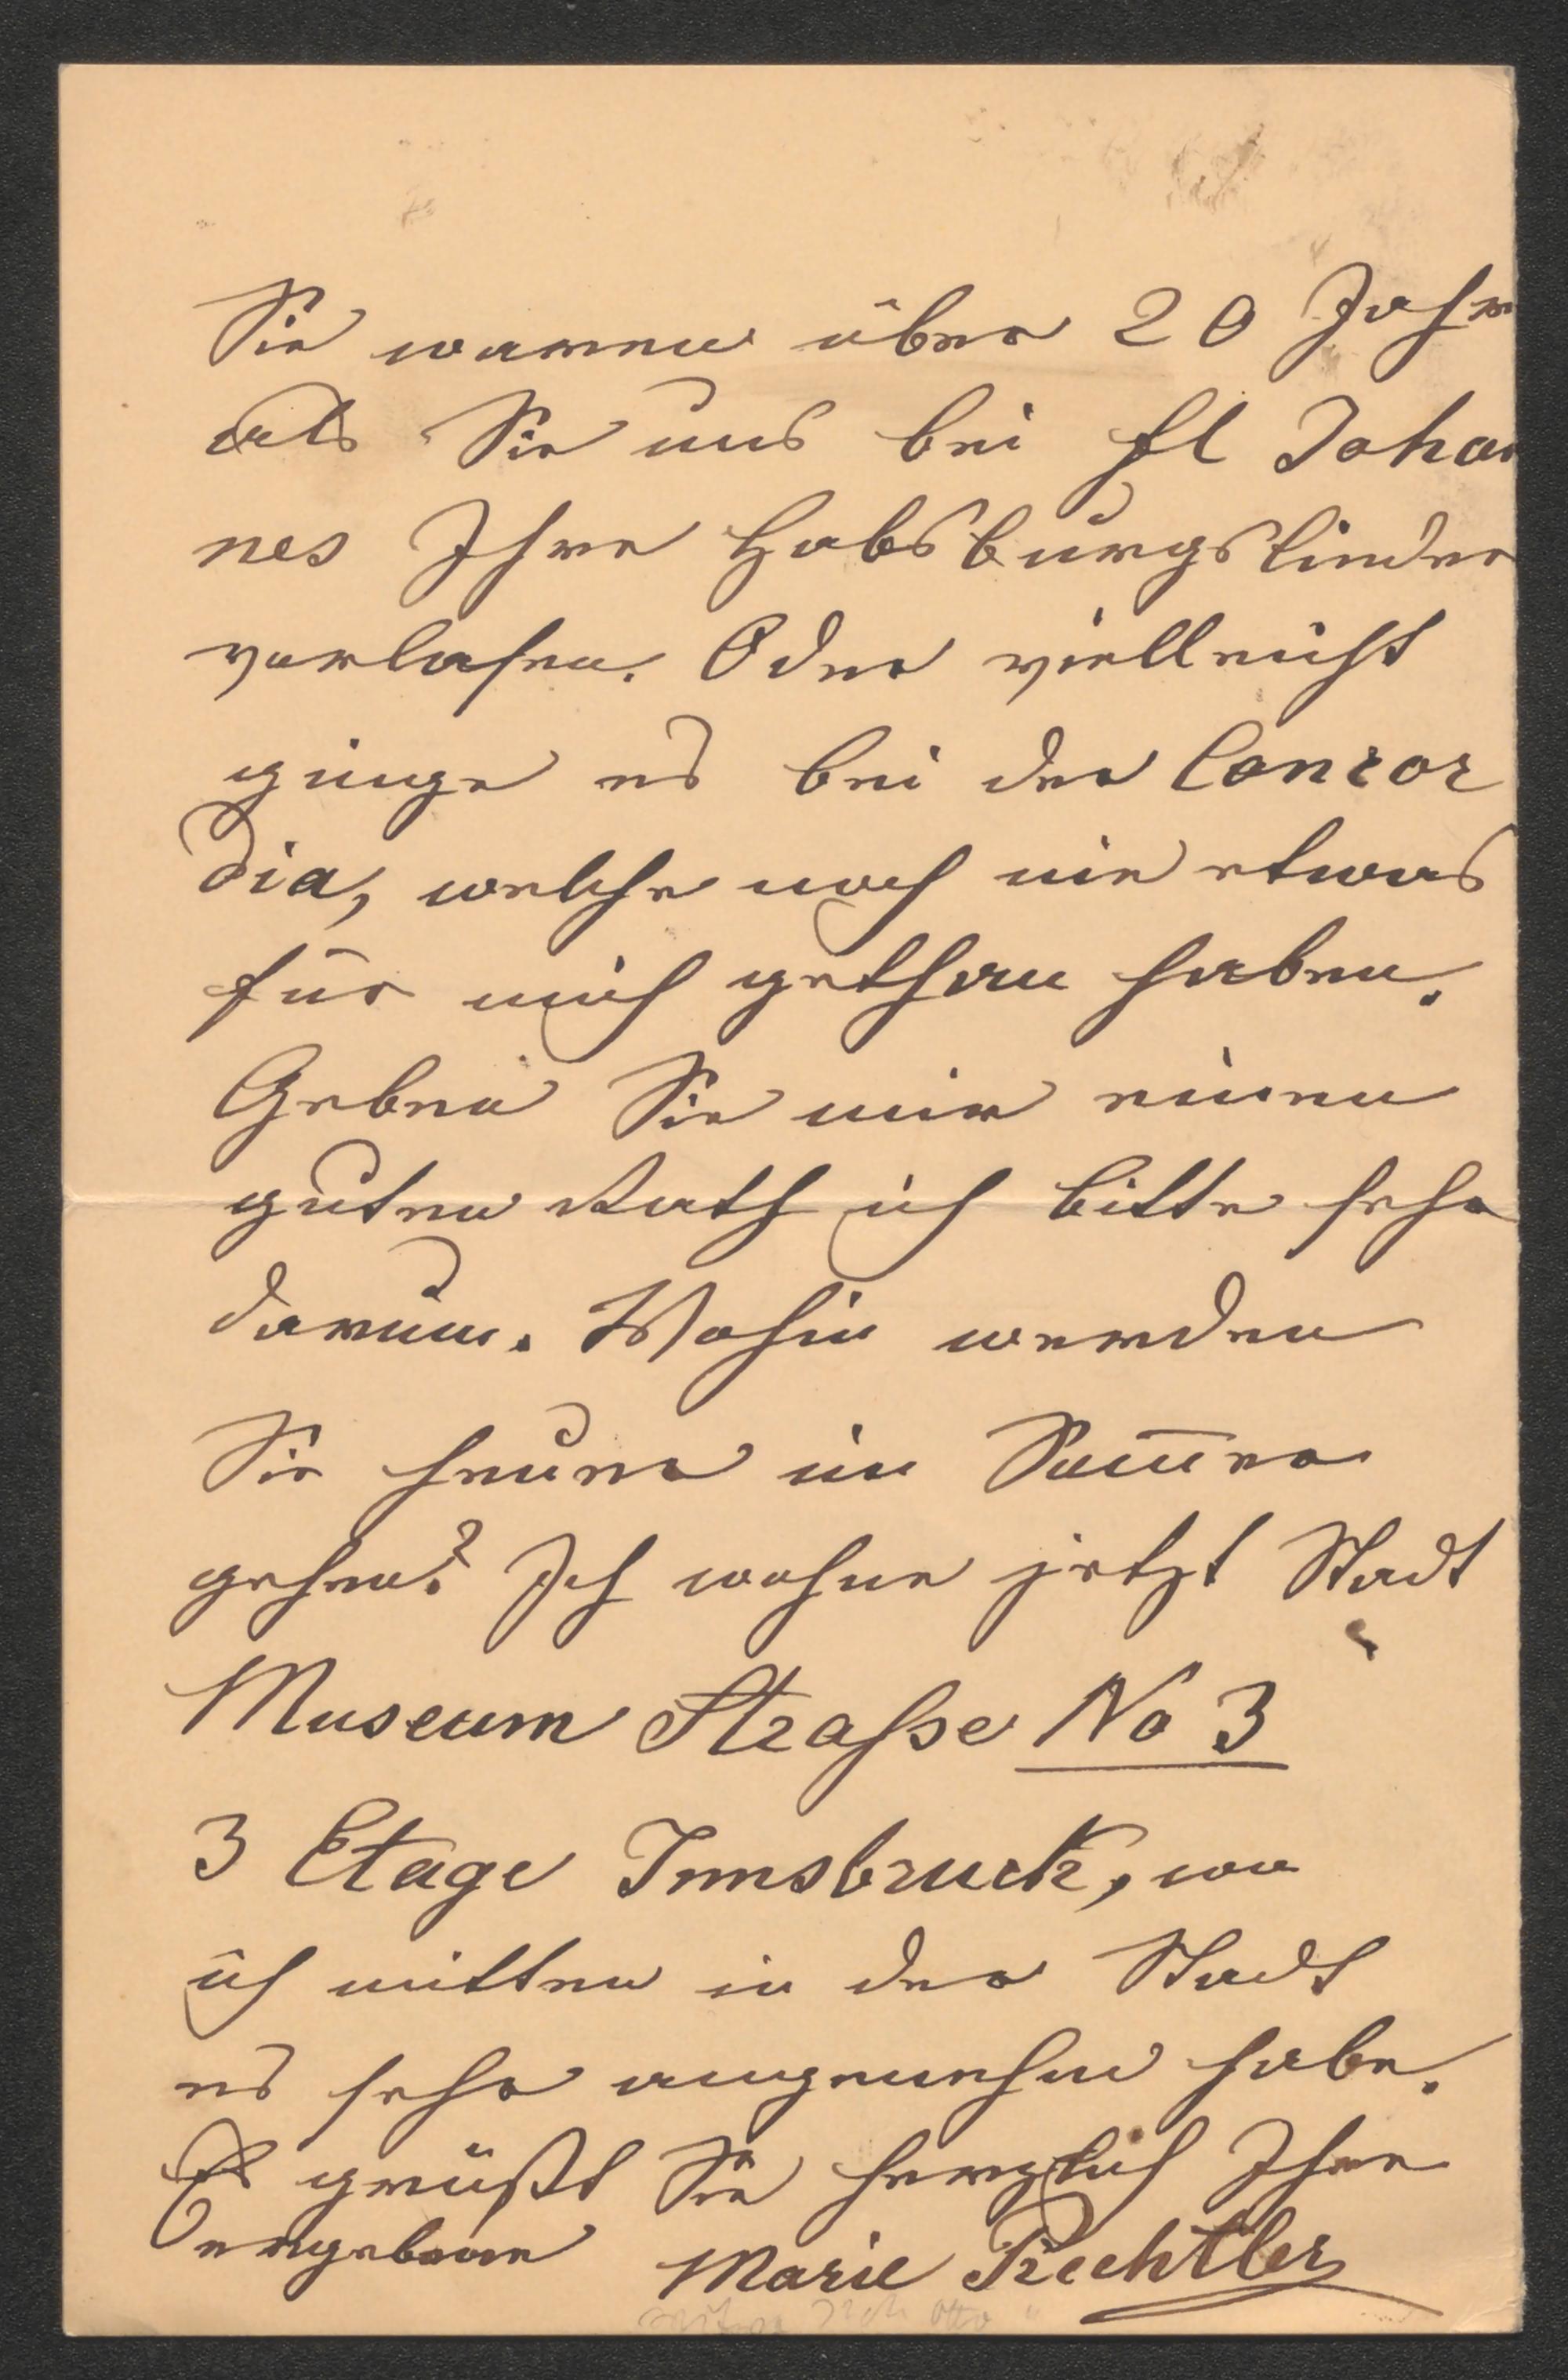 Sie waren über 20 Jahr
als Sie uns bei fl Johan
nes Ihre Habsburgslieder
vorlasen. Oder vielleicht
ginge es bei der Concor
dia, welche noch nie etwas
für mich gethan haben.
Geben Sie mir einen
guten Rath ich bitte sehr
darum. Wohin werden
Sie heuer im Som̅er
gehen? Ich wohne jetzt Stadt
Museum Straße No 3
3 Etage Innsbruck, wo
ich mitten in der Stadt
es sehr angenehm habe.
Es grüßt Sie herzlich Ihre
ergebene Marie Prechtler